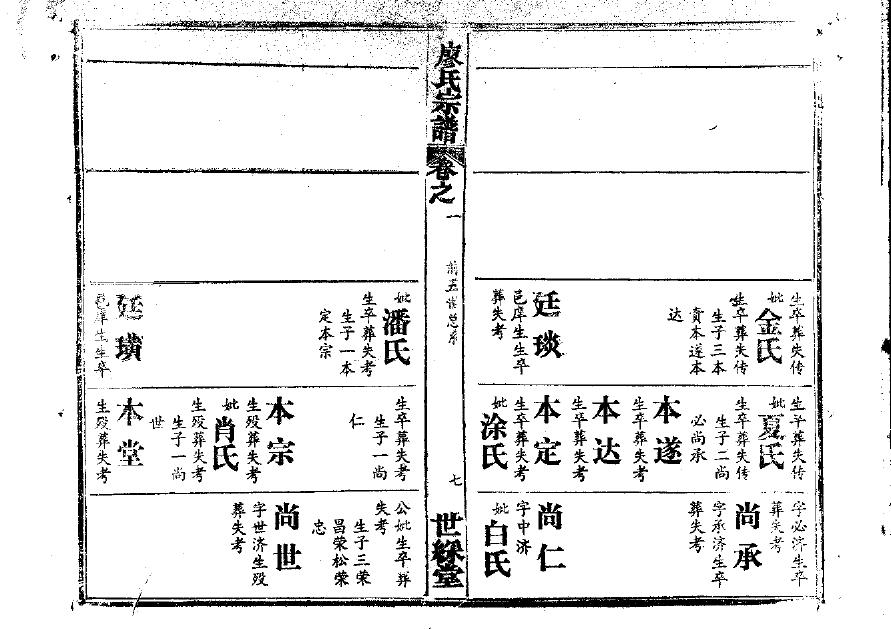 生卒葬失传
妣金氏
生卒葬失传
生子三本
贵本遂本
达
廷琰
邑庠生生卒
葬失考
生卒葬失传
妣夏氏
生卒葬失传
生子二尚
必尚承
本遂
生卒葬失考
本达
生卒葬失考
本定
生卒葬失考
妣涂氏
字必济生卒
葬失考
尚承
字承济生卒
葬失考
尚仁
字中济
妣白氏
廖氏宗譜
卷之一
前五世总系
七
世綵堂
妣潘氏
生卒葬失考
生子一本
定本宗
廷璜
邑庠生生卒
生卒葬失考
生子一尚
仁
本宗
生殁葬失考
妣肖氏
生殁葬失考
生子一尚
世
本堂
生殁葬失考
公妣生卒葬
失考
生子三荣
昌荣松荣
忠
尚世
字世济生殁
葬失考